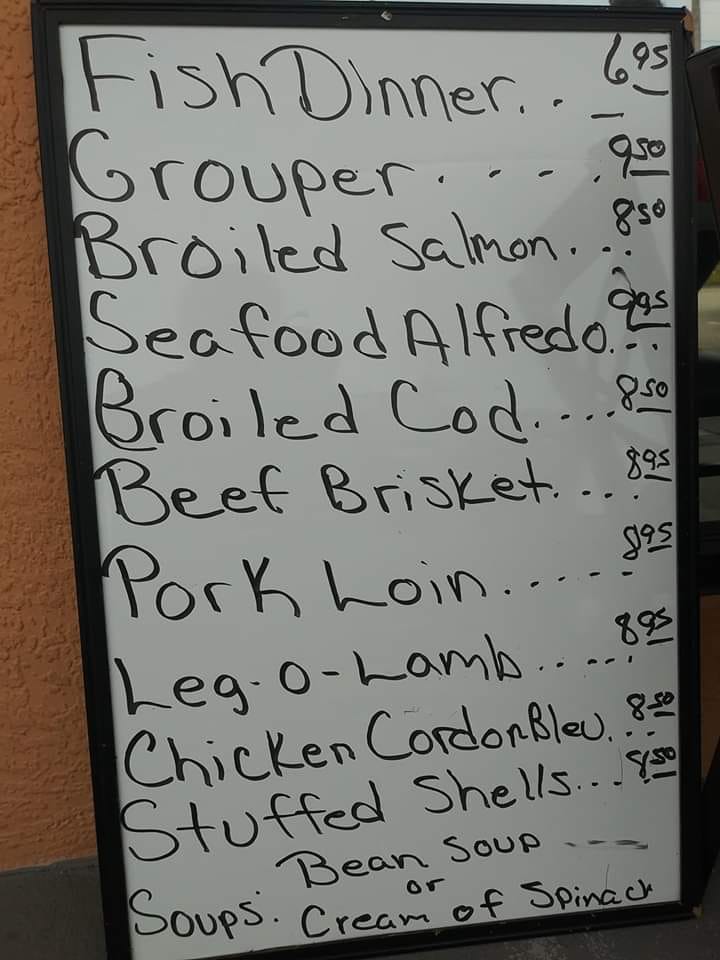 Fish Dinner.. 6 95
Grouper..... 9 50
Broiled Salmon... 8 50
Seafood Alfredo... 9 95
Broiled Cod..... 8 50
Beef Brisket.... 8 95
Pork Loin...... 8 95
Leg-O-Lamb..... 8 95
Chicken Cordon Bleu... 8 50
Stuffed Shells... 8 50
Bean Soup
or
Soups: Cream of Spinach